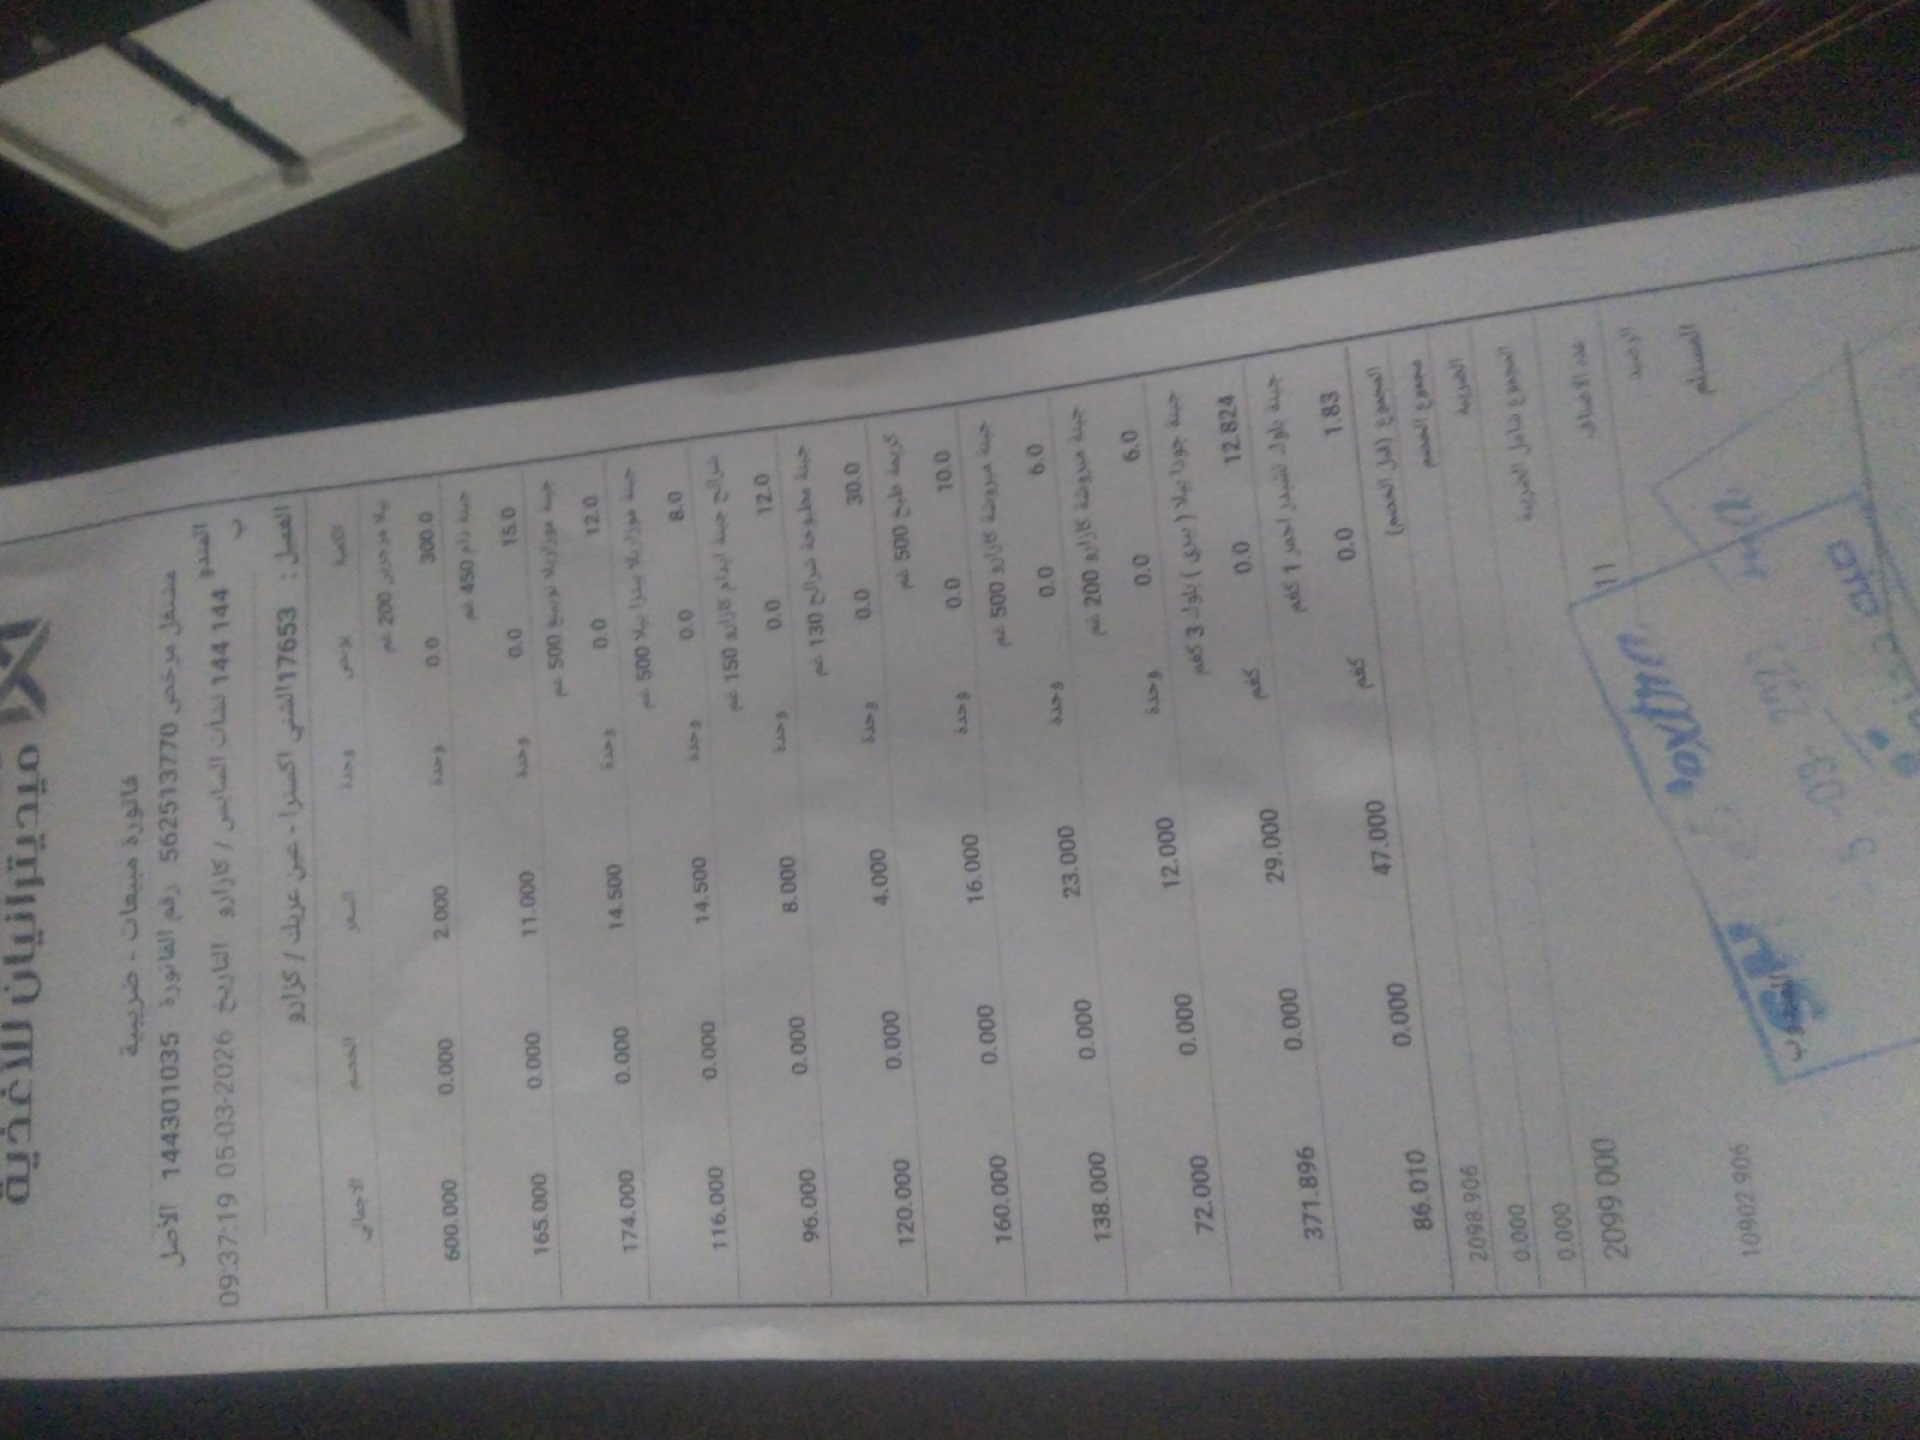 ميديترانيان للأغذية
فاتورة مبيعات - ضريبية
مشتغل مرخص 562513770 رقم الفاتورة 144301035 الأصل
المندوب 144 144 نشات السايس / كازارو التاريخ 05-03-2026 09:37:19
العميل : 17653 الشني اكسترا - عين عريك / كزارو
الكمية بونص وحدة السعر الخصم الاجمالي
200 غم
300.0 0.0 وحدة 2.000 0.000 600.000
جبنة 450 غم
15.0 0.0 وحدة 11.000 0.000 165.000
جبنة موزاريلا 500 غم
12.0 0.0 وحدة 14.500 0.000 174.000
جبنة موزاريلا بيتزا بيلا 500 غم
8.0 0.0 وحدة 14.500 0.000 116.000
شرائح جبنة ايدام كازارو 150 غم
12.0 0.0 وحدة 8.000 0.000 96.000
جبنة مطبوخة شرائح 130 غم
30.0 0.0 وحدة 4.000 0.000 120.000
كريمة طبخ 500 غم
10.0 0.0 وحدة 16.000 0.000 160.000
جبنة مبروشة كازارو 500 غم
6.0 0.0 وحدة 23.000 0.000 138.000
جبنة مبروشة كازارو 200 غم
6.0 0.0 وحدة 12.000 0.000 72.000
جبنة جودا بيلا بلوك 3 كغم
12.824 0.0 كغم 29.000 0.000 371.896
جبنة بلوك تشيدر احمر 1 كغم
1.83 0.0 كغم 47.000 0.000 86.010
المجموع (قبل الخصم) 2098.906
مجموع الخصم 0.000
الضريبة 0.000
المجموع شامل الضريبة 2099.000
عدد الاصناف 11
الرصيد 10902.906
المستلم
extra